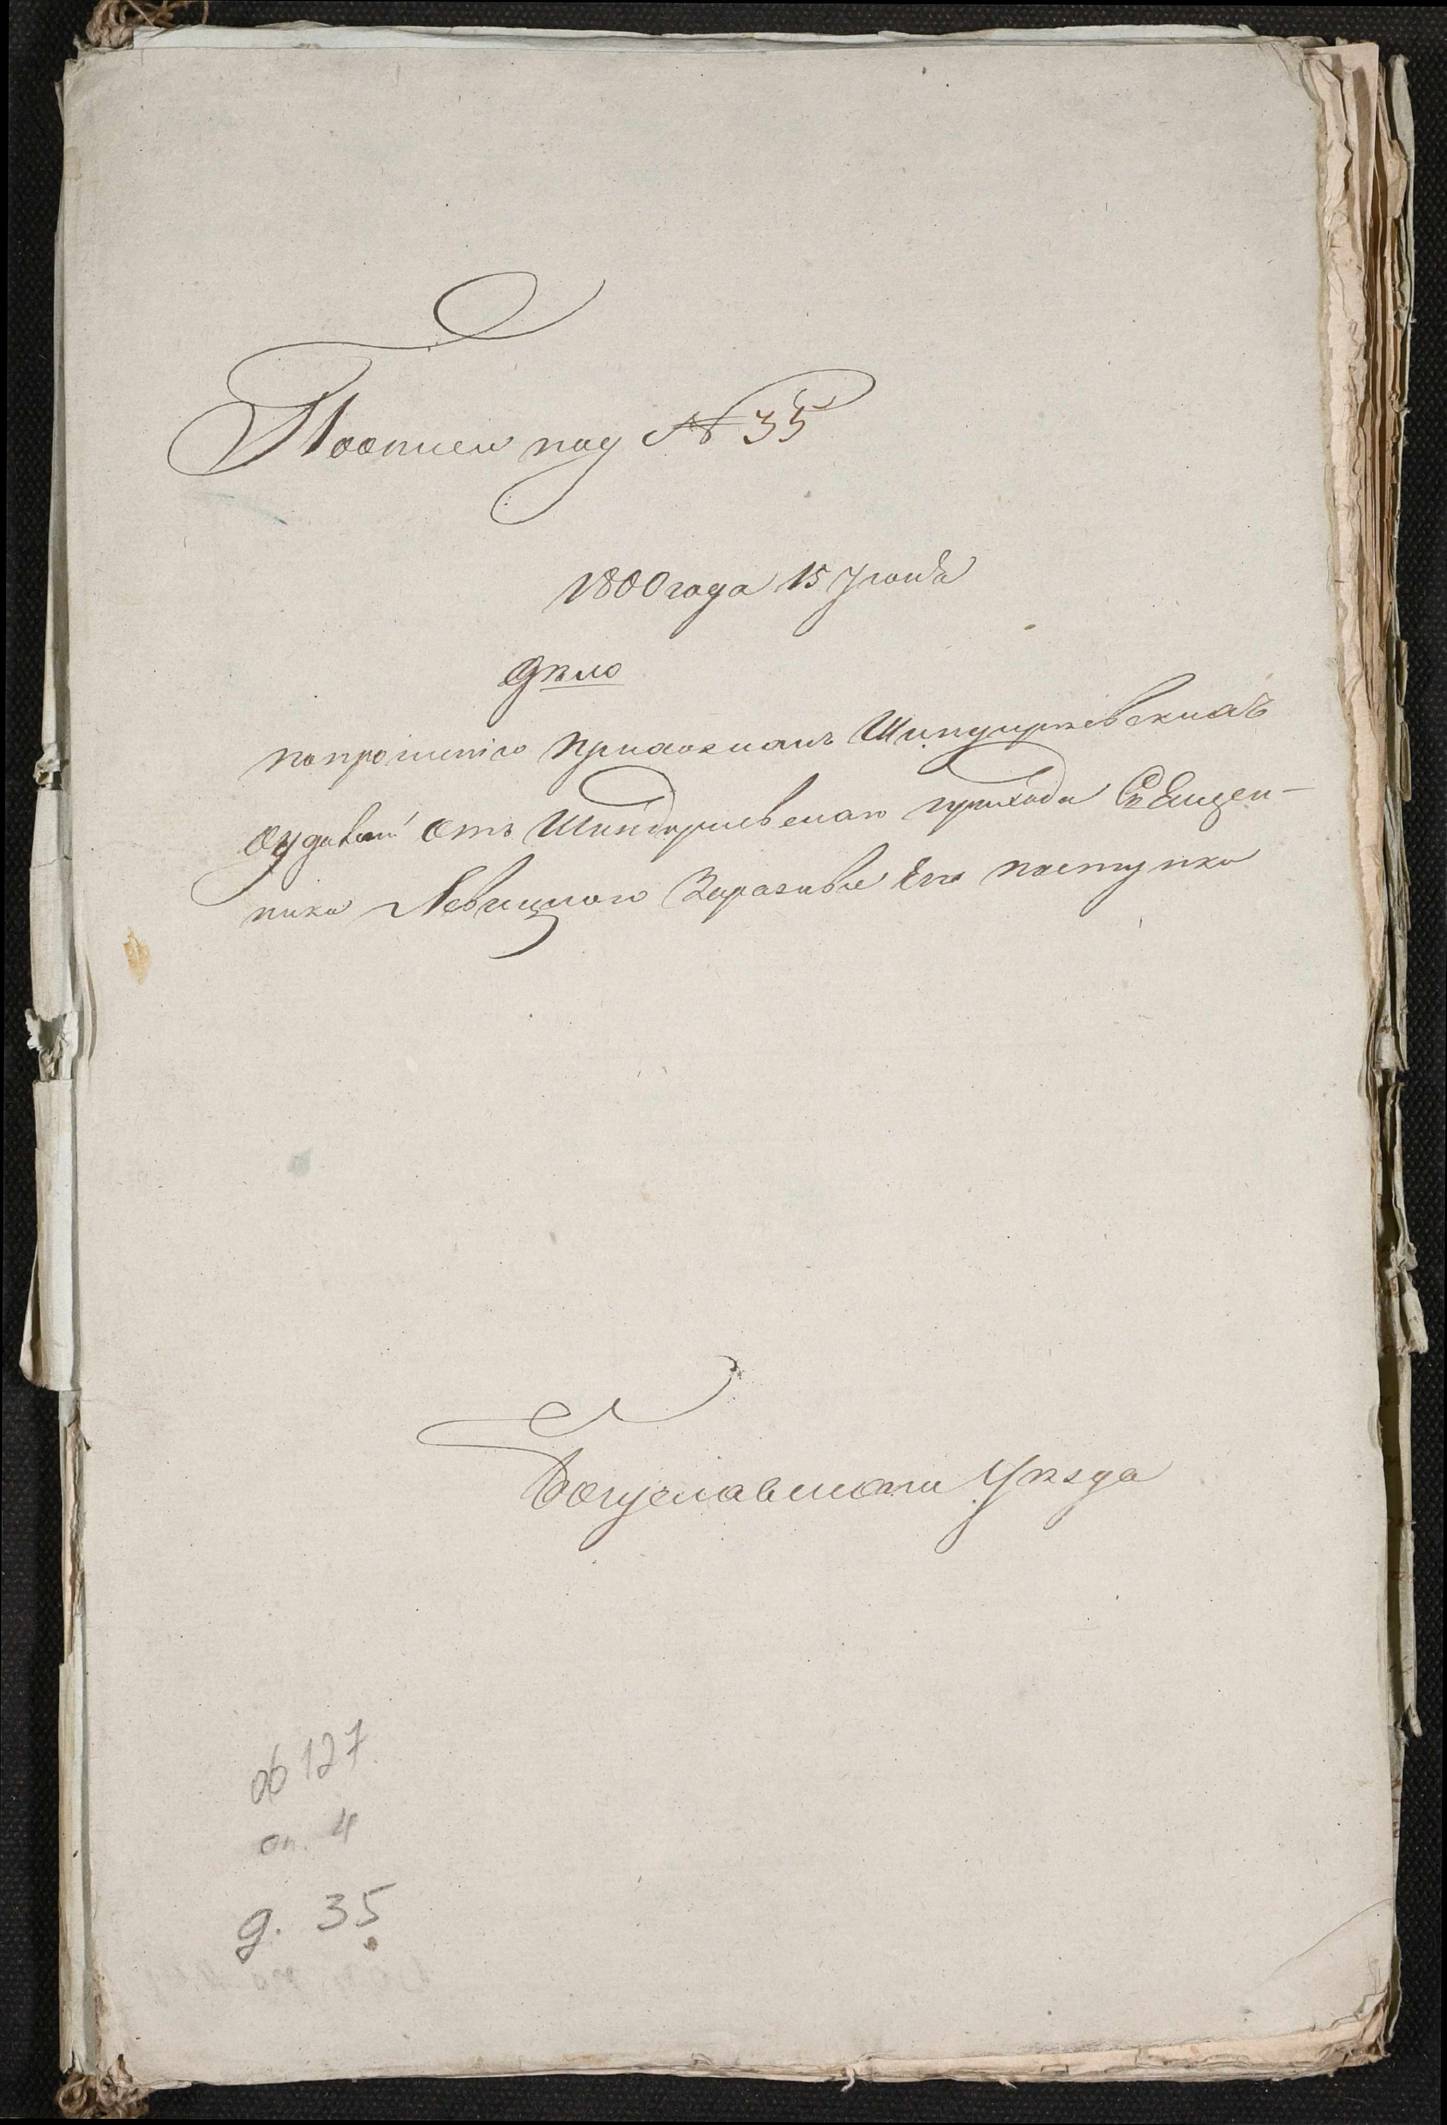 По описи под № 35
1800 года 15 Июня
Дѣло
по прошенію прихожанъ Шиндыревскихъ
о удаленіи отъ Шиндыревскаго прихода Священ-
ника Левицкого За разные Его поступки
Богуславского Уѣзда
ф 127
оп. 4
д. 35